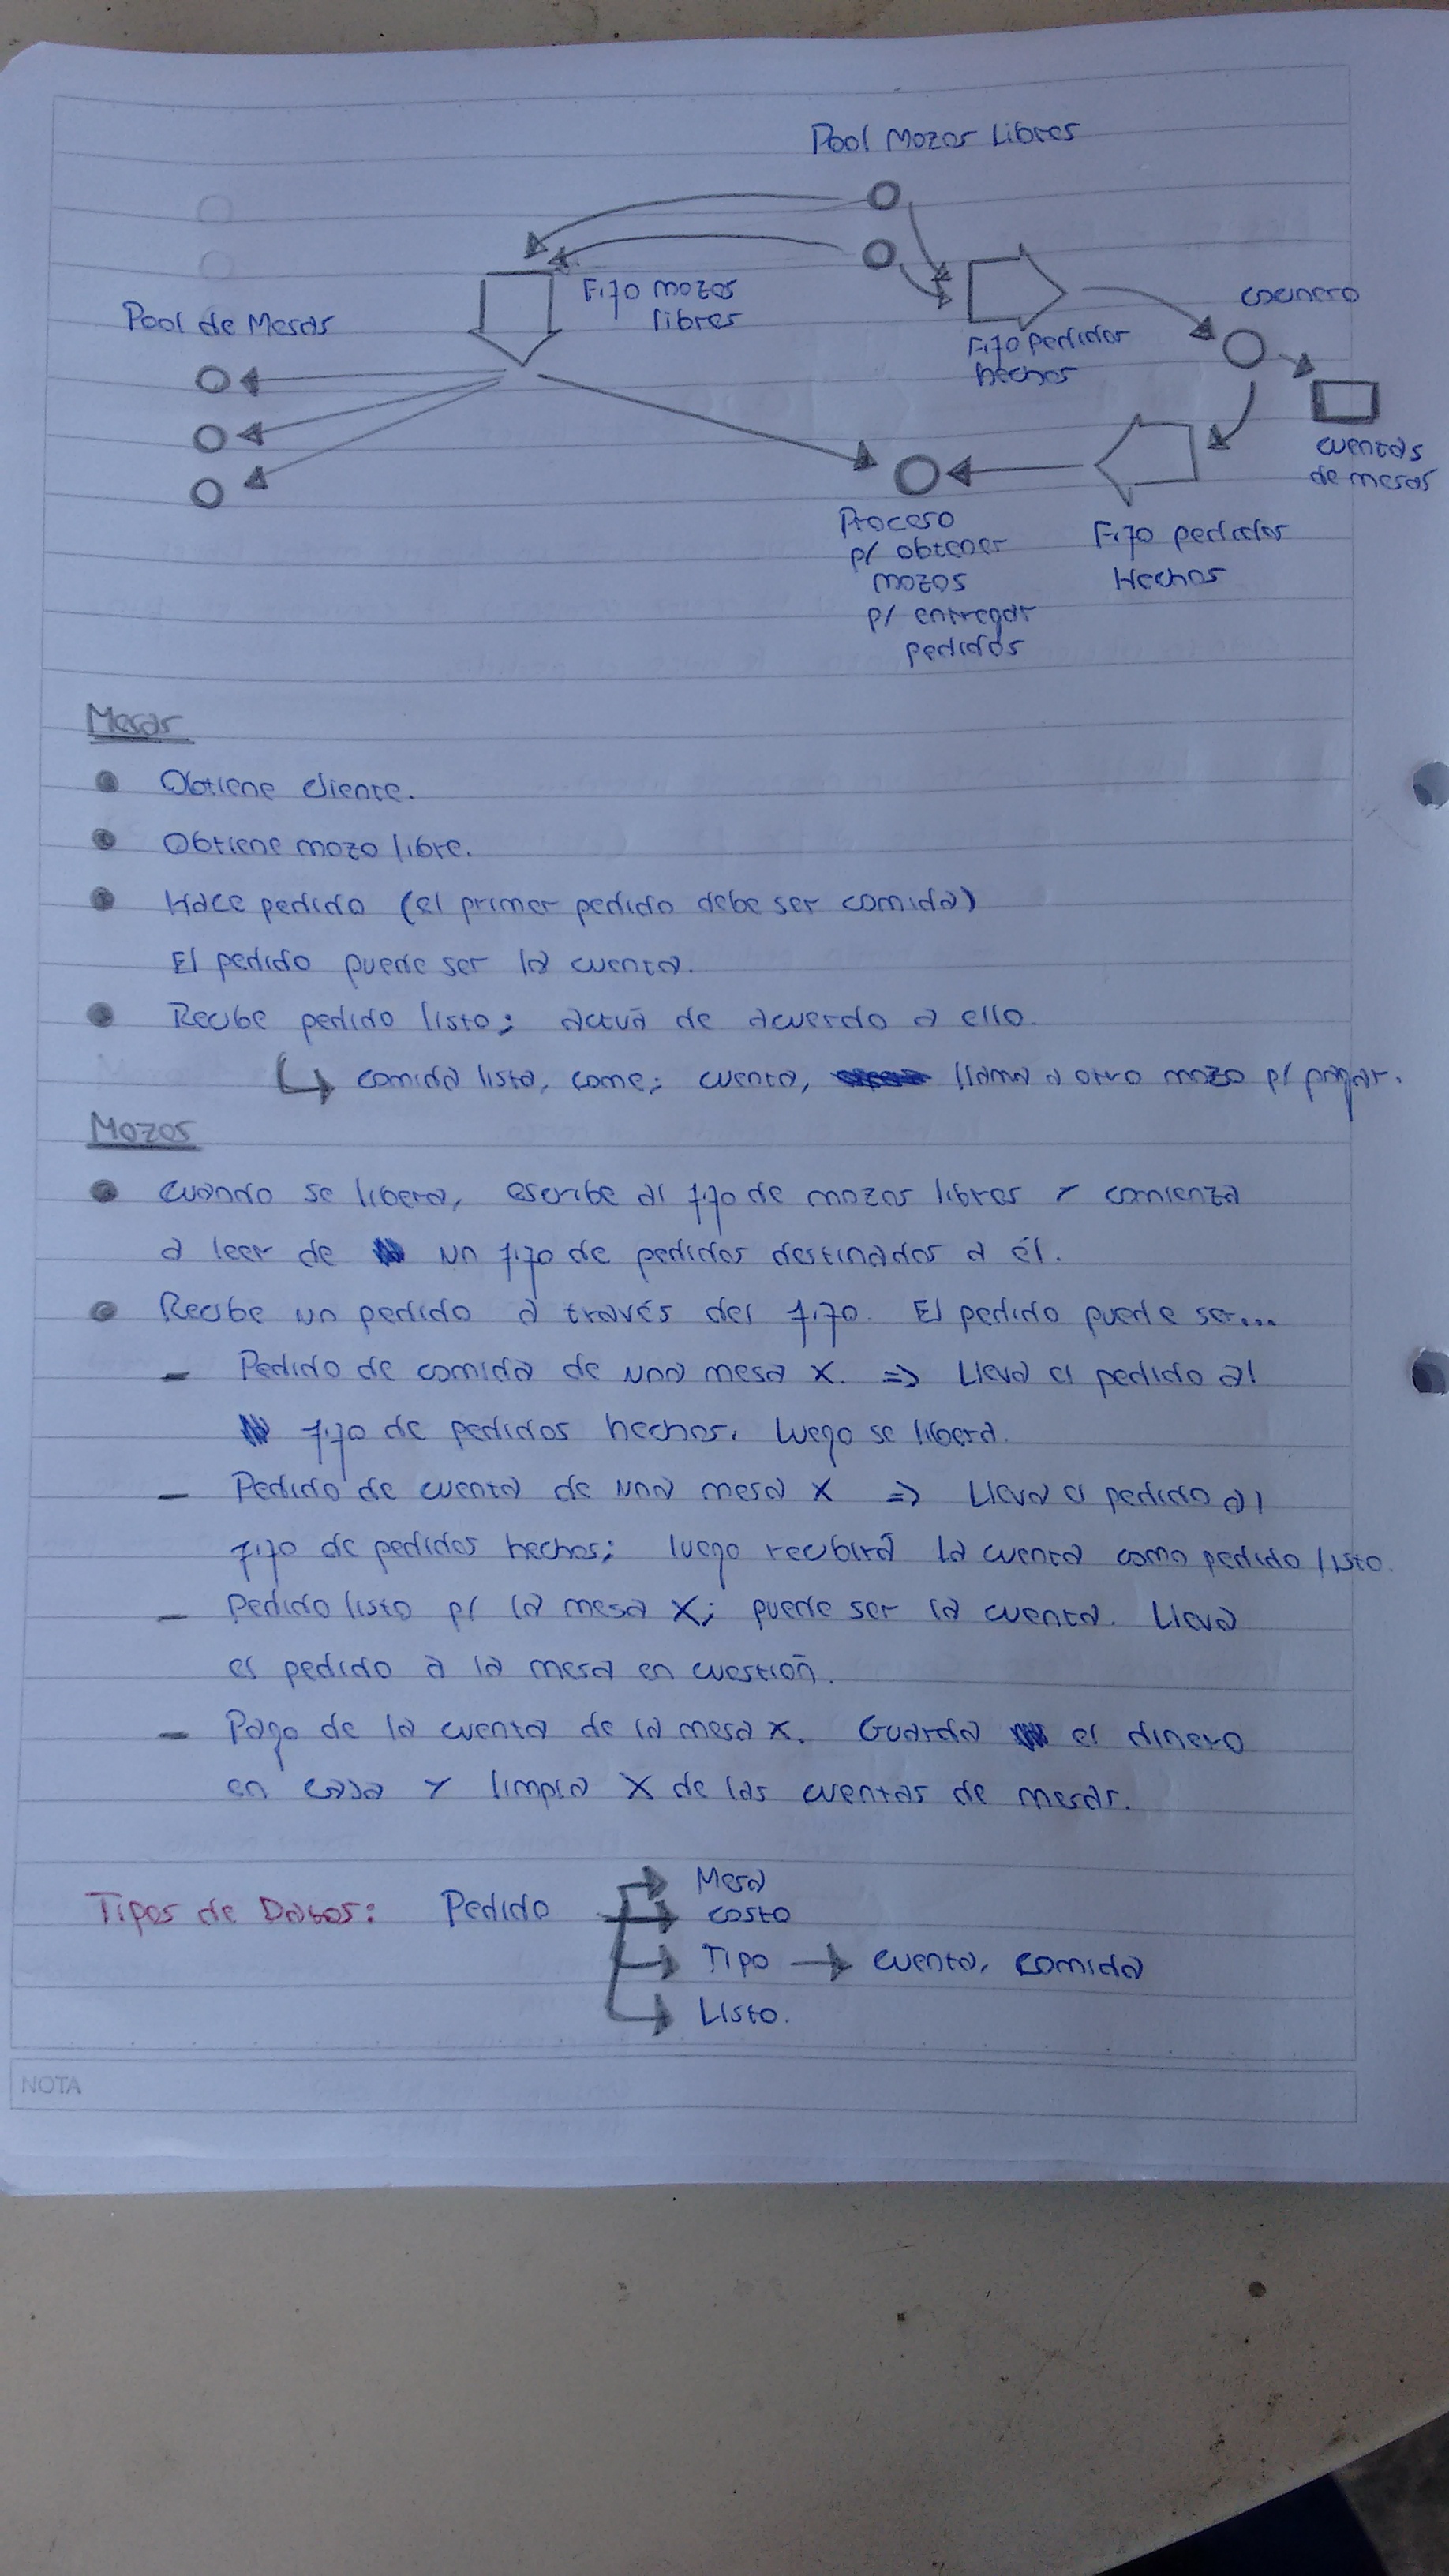 Pool Mozos Libres
Fifo mozos
libres
cocinero
Pool de Mesas
Fifo pedidos
hechos
cuentas
de mesas
Proceso
p/ obtener
mozos
p/ entregar
pedidos
Fifo pedidos
Hechos
Mesas
Obtiene cliente.
Obtiene mozo libre.
Hace pedido (el primer pedido debe ser comida)
El pedido puede ser la cuenta.
Recibe pedido listo; actuá de acuerdo a ello.
comida lista, come; cuenta, llama a otro mozo p/ pagar.
Mozos
Cuando se libera, escribe al fifo de mozos libres y comienza
a leer de un fifo de pedidos destinados a él.
Recibe un pedido a través del fifo. El pedido puede ser...
- Pedido de comida de una mesa X. => Lleva el pedido al
fifo de pedidos hechos. Luego se libera.
- Pedido de cuenta de una mesa X => Lleva el pedido al
fifo de pedidos hechos; luego recibirá la cuenta como pedido listo.
- Pedido listo p/ la mesa X; puede ser la cuenta. Lleva
el pedido a la mesa en cuestión.
- Pago de la cuenta de la mesa X. Guarda el dinero
en caja y limpia X de las cuentas de mesas.
Tipos de Datos: Pedido
Mesa
costo
Tipo → cuenta, comida
Listo.
NOTA